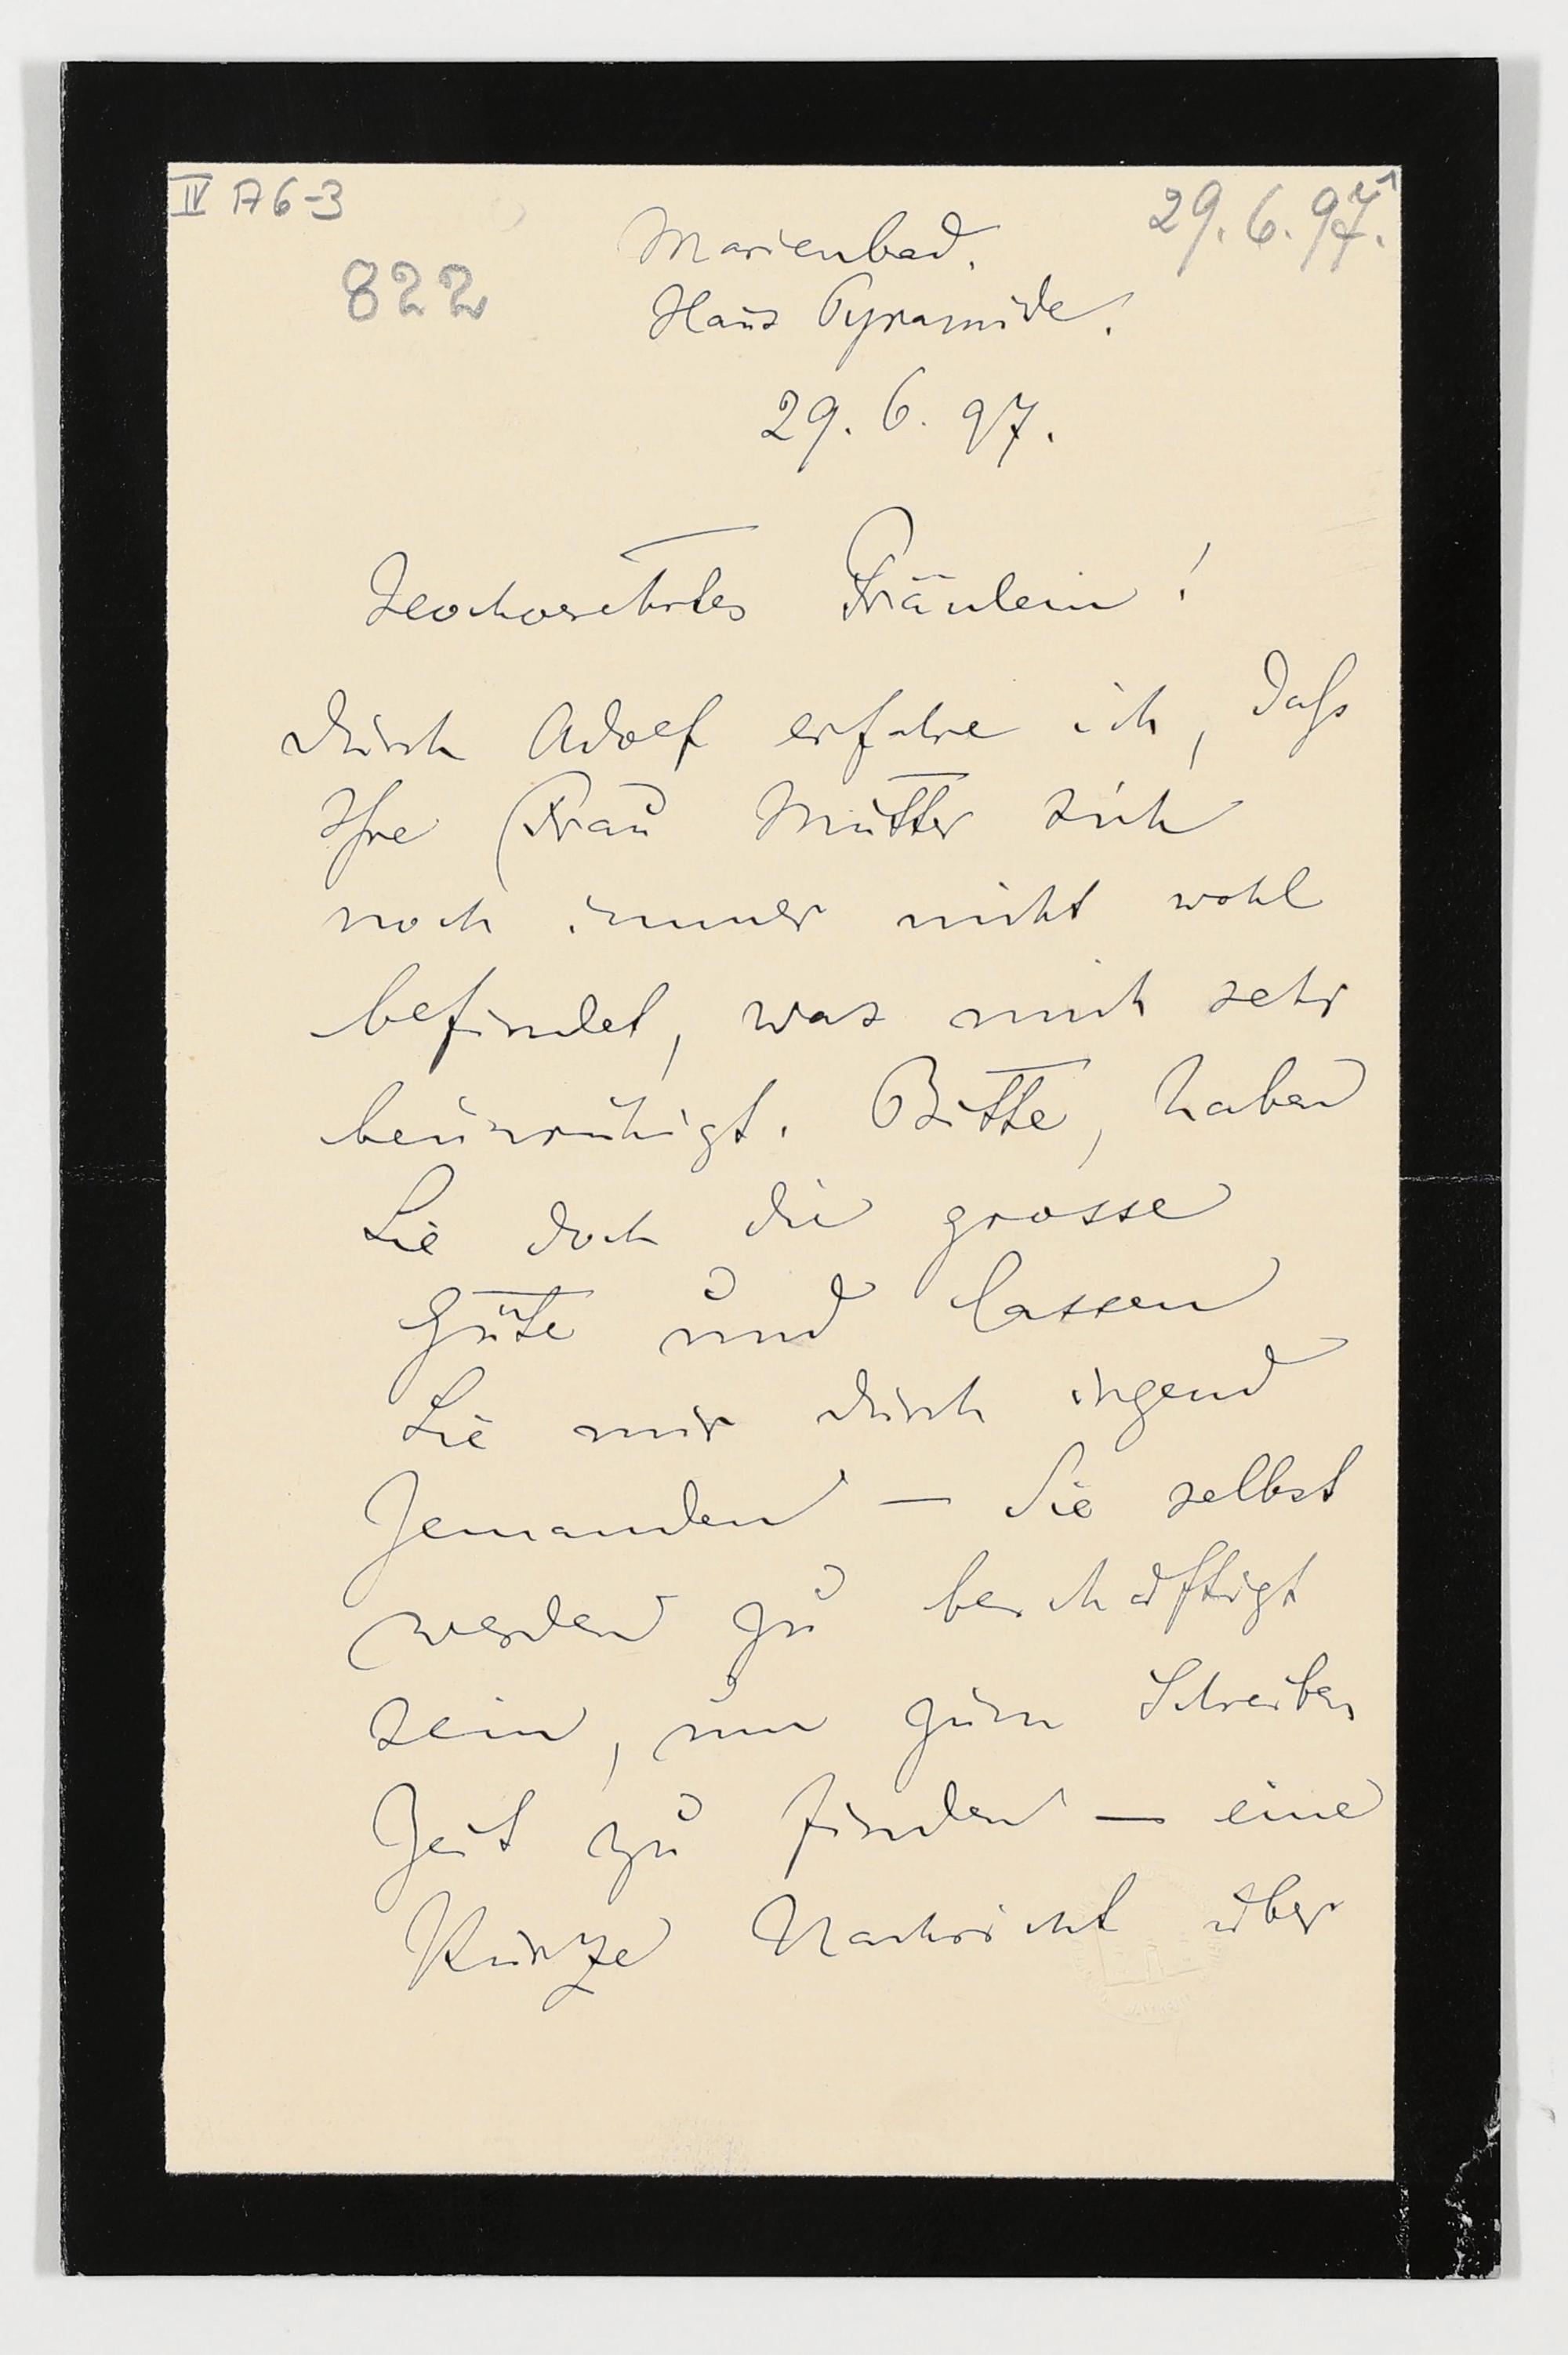 IV A 6-3
29.6.97.1
822
Marienbad.
Haus Pyramide.
29. 6. 97.
Hochverehrtes Fräulein!
Durch Adolf erfahre ich, daſs
Ihre Frau Mutter sich
noch immer nicht wohl
befindet, was mich sehr
beunruhigt. Bitte, haben
Sie doch die grosse
Güte und lassen
Sie mir durch irgend
Jemanden – Sie selbst
werden zu beschäftigt
sein, um zum Schreiben
Zeit zu finden – eine
Kurze Nachricht über